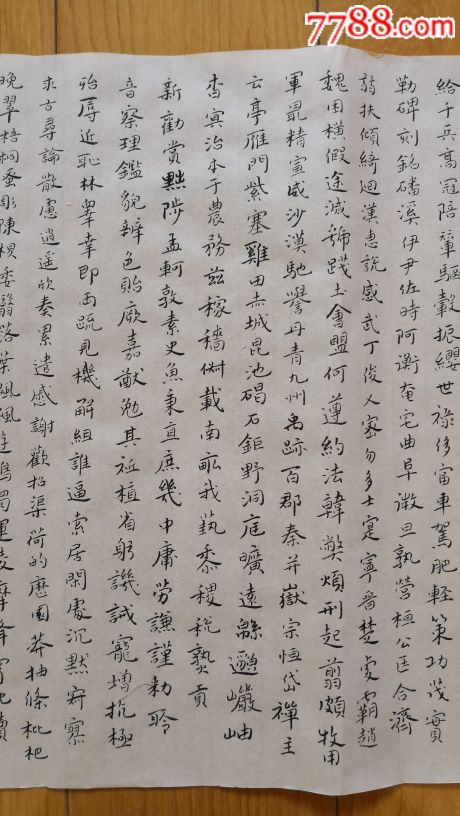 7788.com
給千兵高冠陪輦驅轂振纓世祿侈富車駕肥輕策功茂實
勒碑刻銘磻溪伊尹佐時阿衡奄宅曲阜微旦孰營桓公匡合濟
弱扶傾綺迴漢惠說感武丁俊乂密勿多士寔寧晉楚更霸趙
魏困橫假途滅虢踐土會盟何遵約法韓弊煩刑起翦頗牧用
軍最精宣威沙漠馳譽丹青九州禹跡百郡秦并嶽宗恒岱禪主
云亭雁門紫塞雞田赤城昆池碣石鉅野洞庭曠遠緜邈巖岫
杳冥治本于農務茲稼穡俶載南畝我藝黍稷稅熟貢
新勸賞黜陟孟軻敦素史魚秉直庶幾中庸勞謙謹勑聆
音察理鑑貌辨色貽厥嘉猷勉其祗植省躬譏誡寵增抗極
殆辱近恥林皋幸即兩疏見機解組誰逼索居閑處沉默寂寥
求古尋論散慮逍遙欣奏累遣慼謝歡招渠荷的歷園莽抽條枇杷
晚翠梧桐蚤彫陳根委翳落葉飄颻